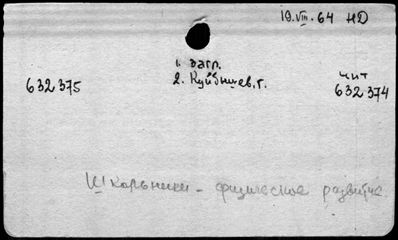 19.VIII.64 НД
1. загл.
2. Куйбышев, г.
чит
632375
632374
Школьники - физическое развитие